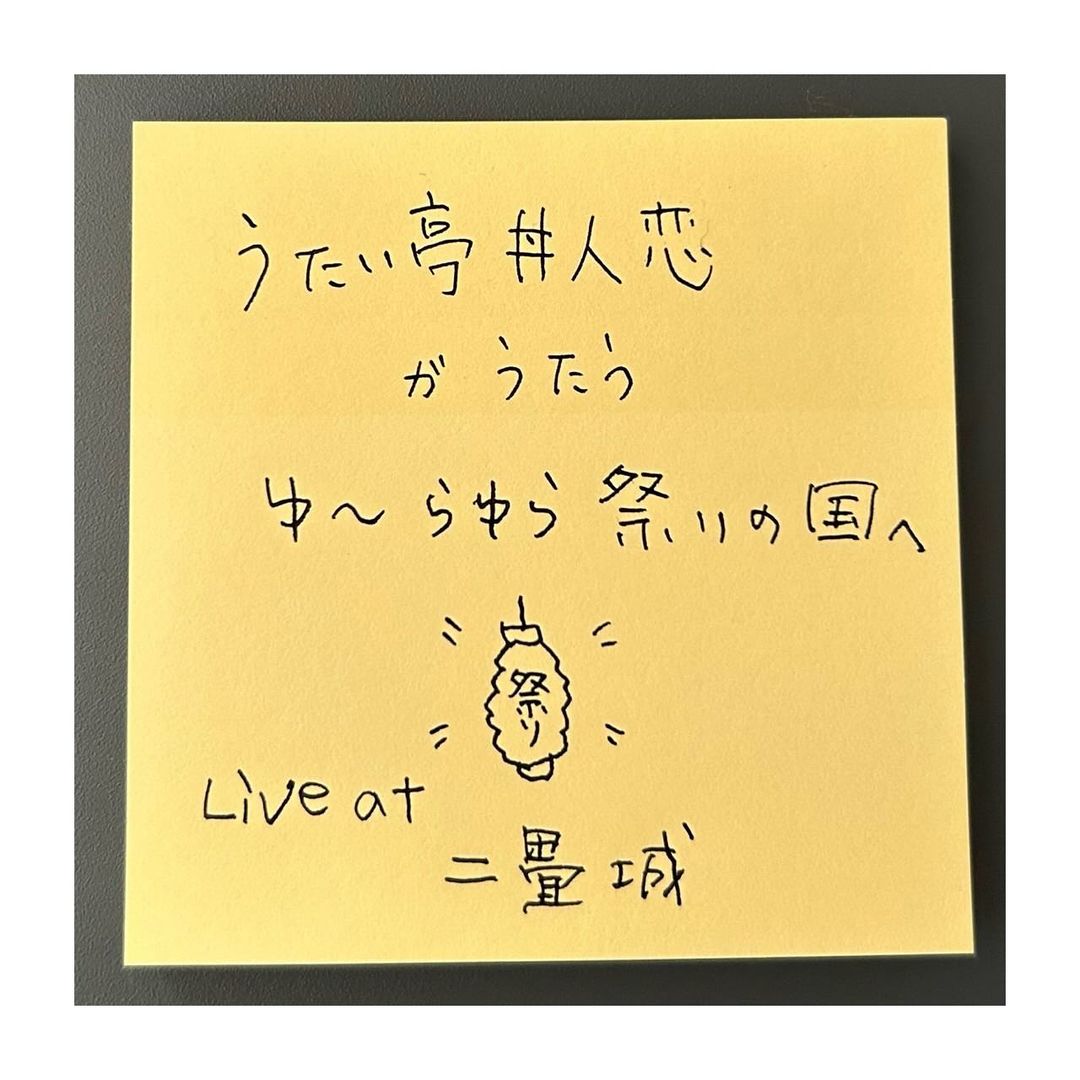 うたい亭 丼人恋
が うたう
ゆ〜らゆら 祭りの国へ
祭り
Live at
二畳城